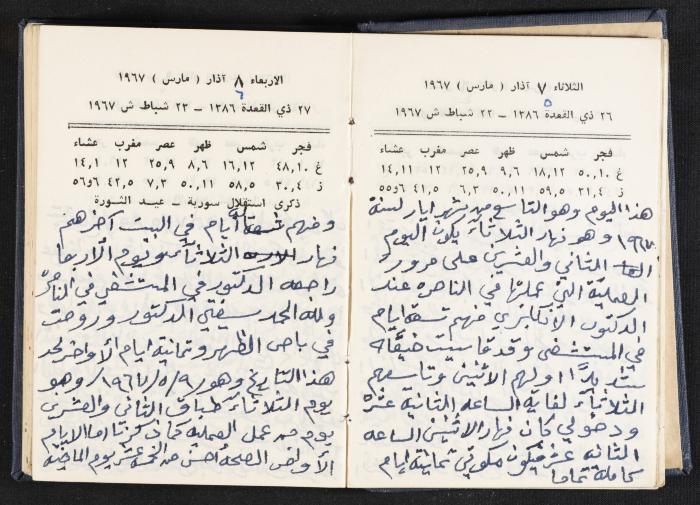 الثلاثاء ٧ آذار ( مارس ) ١٩٦٧
٥
٢٦ ذي القعدة ١٣٨٦ – ٢٢ شباط ش ١٩٦٧
فجر شمس ظهر عصر مغرب عشاء
غ ٥٠,١٠ ١٨,١٢ ٩,٦ ٢٥,٩ ١٢ ١٤,١١
ز ٣١,٤ ٥٩,٥ ٥٠,١١ ٦,٣ ٤١,٥ ٥٥و٦
هذا اليوم وهو التاسع من شهر ايار لسنة
١٩٦٧ وهو نهار الثلاثاء يكون اليوم
الثاني والعشرين على مرور
العملية التي عملتها في الناصره عند
الدكتور الانكليزي فهم تسعة ايام
في المستشفى وقد قاسيت
اولهم الأثنين وتاسعهم
الثلاثاء لغاية الساعه الثانيه عشر
ودخولي كان نهار الاثنين الساعه
الثانه عشر فيكون مكوثي ثمانية ايام
كاملة تماما
الاربعاء ٨ آذار ( مارس ) ١٩٦٧
٦
٢٧ ذي القعدة ١٣٨٦ – ٢٣ شباط ش ١٩٦٧
فجر شمس ظهر عصر مغرب عشاء
غ ٤٨,١٠ ١٦,١٢ ٨,٦ ٢٥,٩ ١٢ ١٤,١
ز ٣٠,٤ ٥٨,٥ ٥٠,١١ ٧,٣ ٤٢,٥ ٥٦و٦
ذكرى استقلال سورية – عيد الثورة
ومنهم تسعة أيام في البيت آخرهم
نهار الثلاثاء ويوم الاربعا
راجعه الدكتور في المستشفى في الناصرة
ولله الحمد الدكتور وروحت
في باص الظهر وثمانية ايام الأواخر لحد
هذا التاريخ وهو ١٩٦٧/٥/٩ وهو
يوم الثلاثاء طباق الثاني والعشرين
يوم من عمل العمليه كما ذكرنا اما الايام
الأواخر الصحه احسن من الخمسة عشر يوم الماضية